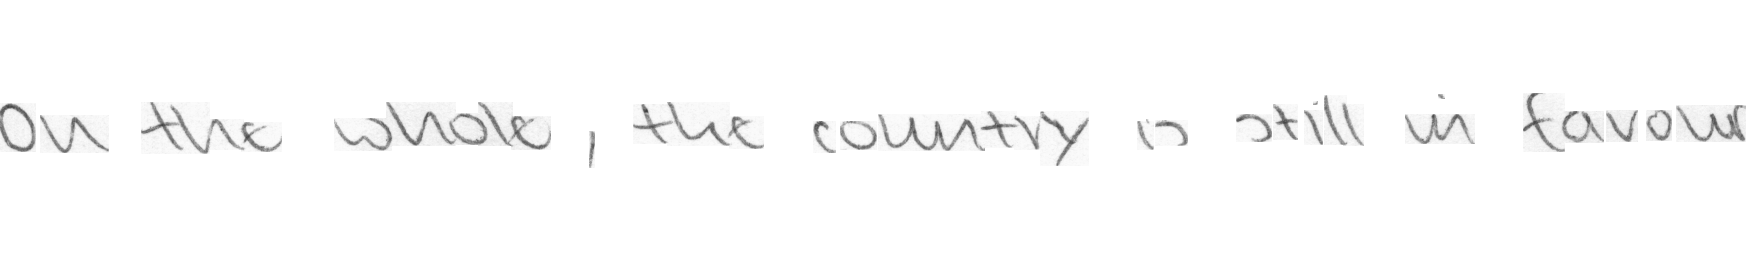 On the whole, the country is still in favour